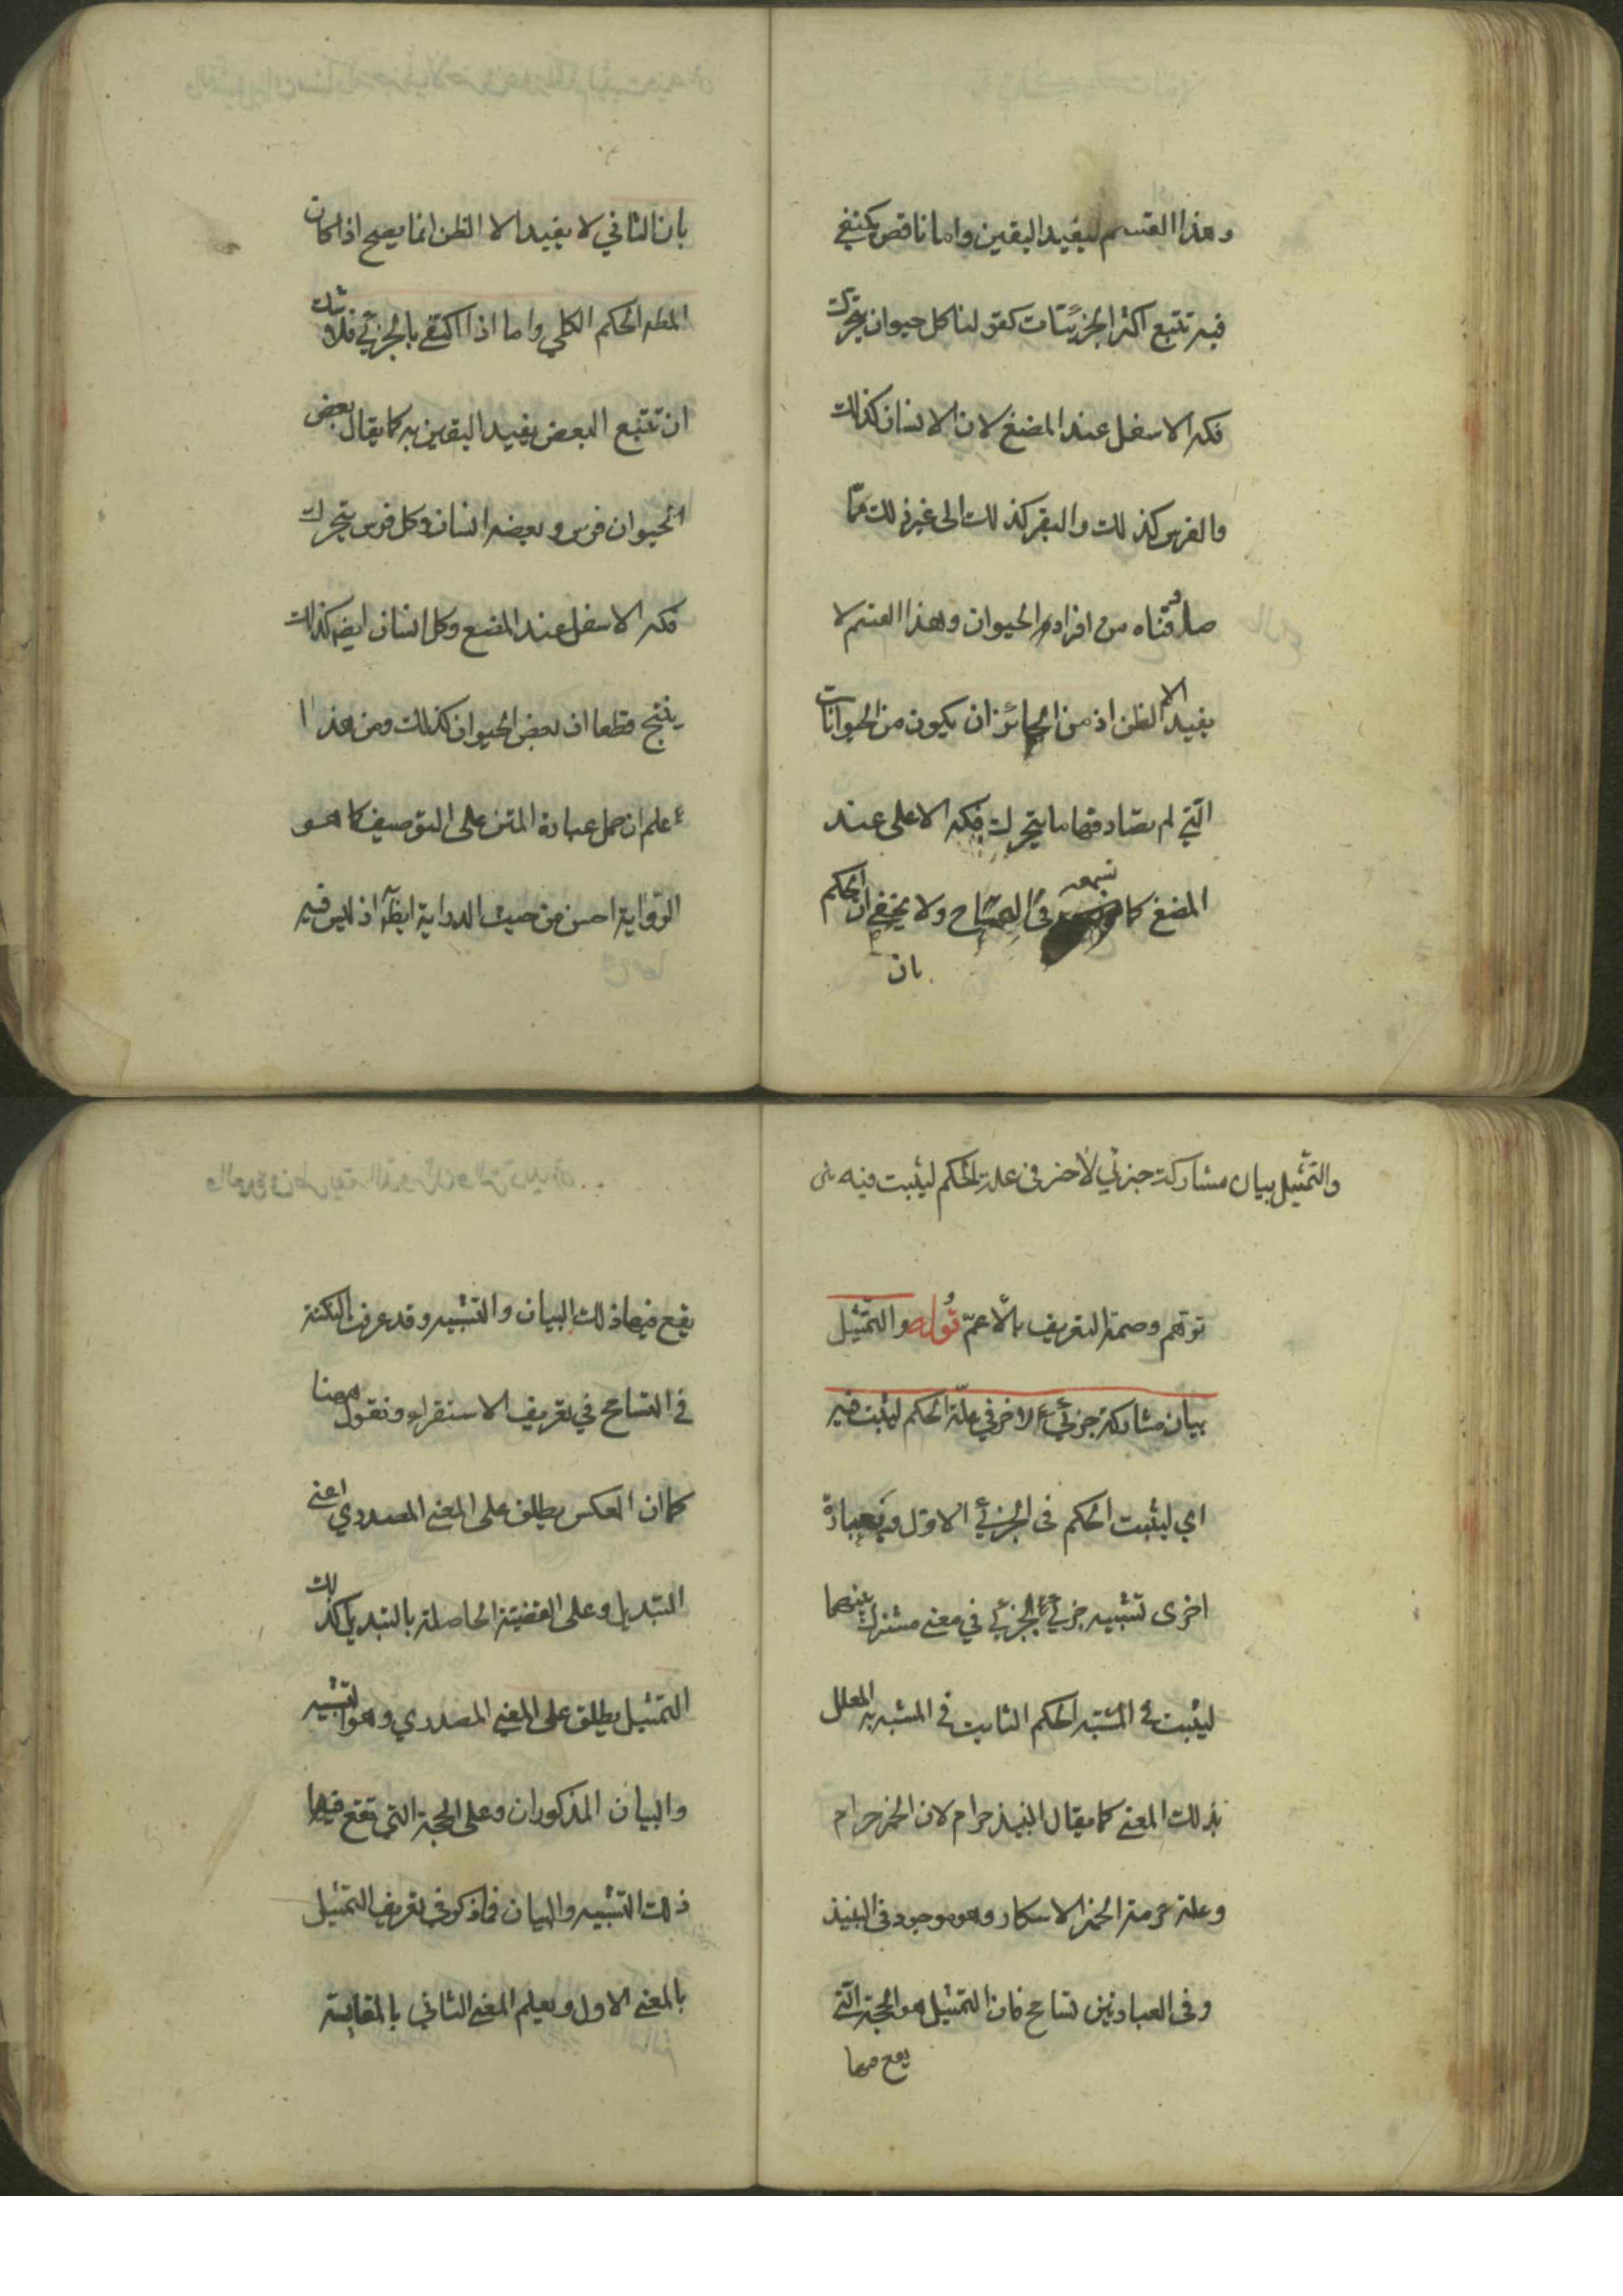 وهذا القسم ليفيد اليقين واما ناقص يكتفي
فيه تتبع اكثر الجزئيات كقولنا كل حيوان يتحرك
فكه الاسفل عند المضغ لان الانسان كذلك
والفرس كذلك والبقر كذلك الى غير ذلك مما
صادفناه من افراد الحيوان وهذا القسم لا
يفيد الا الظن اذ من الجائز ان يكون من الحيوانات
الّتي لم نصادفها ما يتحرك فكه الاعلى عند
المضغ كما نسمعه في التمساح ولا يخفى ان الحكم
بان
بان الثاني لا يفيد الا الظن انما يصح اذا كان
المطه الحكم الكلي واما اذا اكتفي بالجزئي فلا شك
ان تتبع البعض يفيد اليقين به كما يقال بعض
الحيوان فرس وبعضه انسان وكل فرس يتحرك
فكه الاسفل عند المضغ وكل انسان ايضه كذلك
ينتج قطعا ان بعض الحيوان كذلك ومن هذا
علم ان حمل عبارة المتن على التوصيف كما هو
الرّواية احسن من حيث الدراية ايضاً اذ ليس فيه
والتمثيل بيان مشاركة جزئي لاخر في علة الحكم ليثبت فيه
توهم وصمة التعريف بالاعمّ قوله والتمثيل
بيان مشاركة جزئي لاخر في علّة الحكم ليثبت فيه
اي ليثبت الحكم في الجزئي الاوّل وفي عبارة
اخرى تشبيه جزئي بجزئي في معنى مشترك بينهما
ليثبت في المشبه الحكم الثابت في المشبه به المعلل
بذلك المعنى كما يقال النبيذ حرام لان الخمر حرام
وعلة حرمة الخمر الاسكار وهو موجود في النبيذ
وفي العبارتين تسامح فان التمثيل هو الحجة الّتي
يقع فيها
يقع فيها ذلك البيان والتشبيه وقد عرفت النكتة
في التسامح في تعريف الاستقراء ونقول ههنا
كما ان العكس يطلق على المعنى المصدري اعني
التبديل وعلى القضية الحاصلة بالتبديل كذلك
التمثيل يطلق على المعنى المصدري وهو التشبيه
والبيان المذكوران وعلى الحجة التي تقع فيها
ذلك التشبيه والبيان فما ذكر في تعريف التمثيل
بالمعنى الاول ويعلم المعنى الثاني بالمقايسة